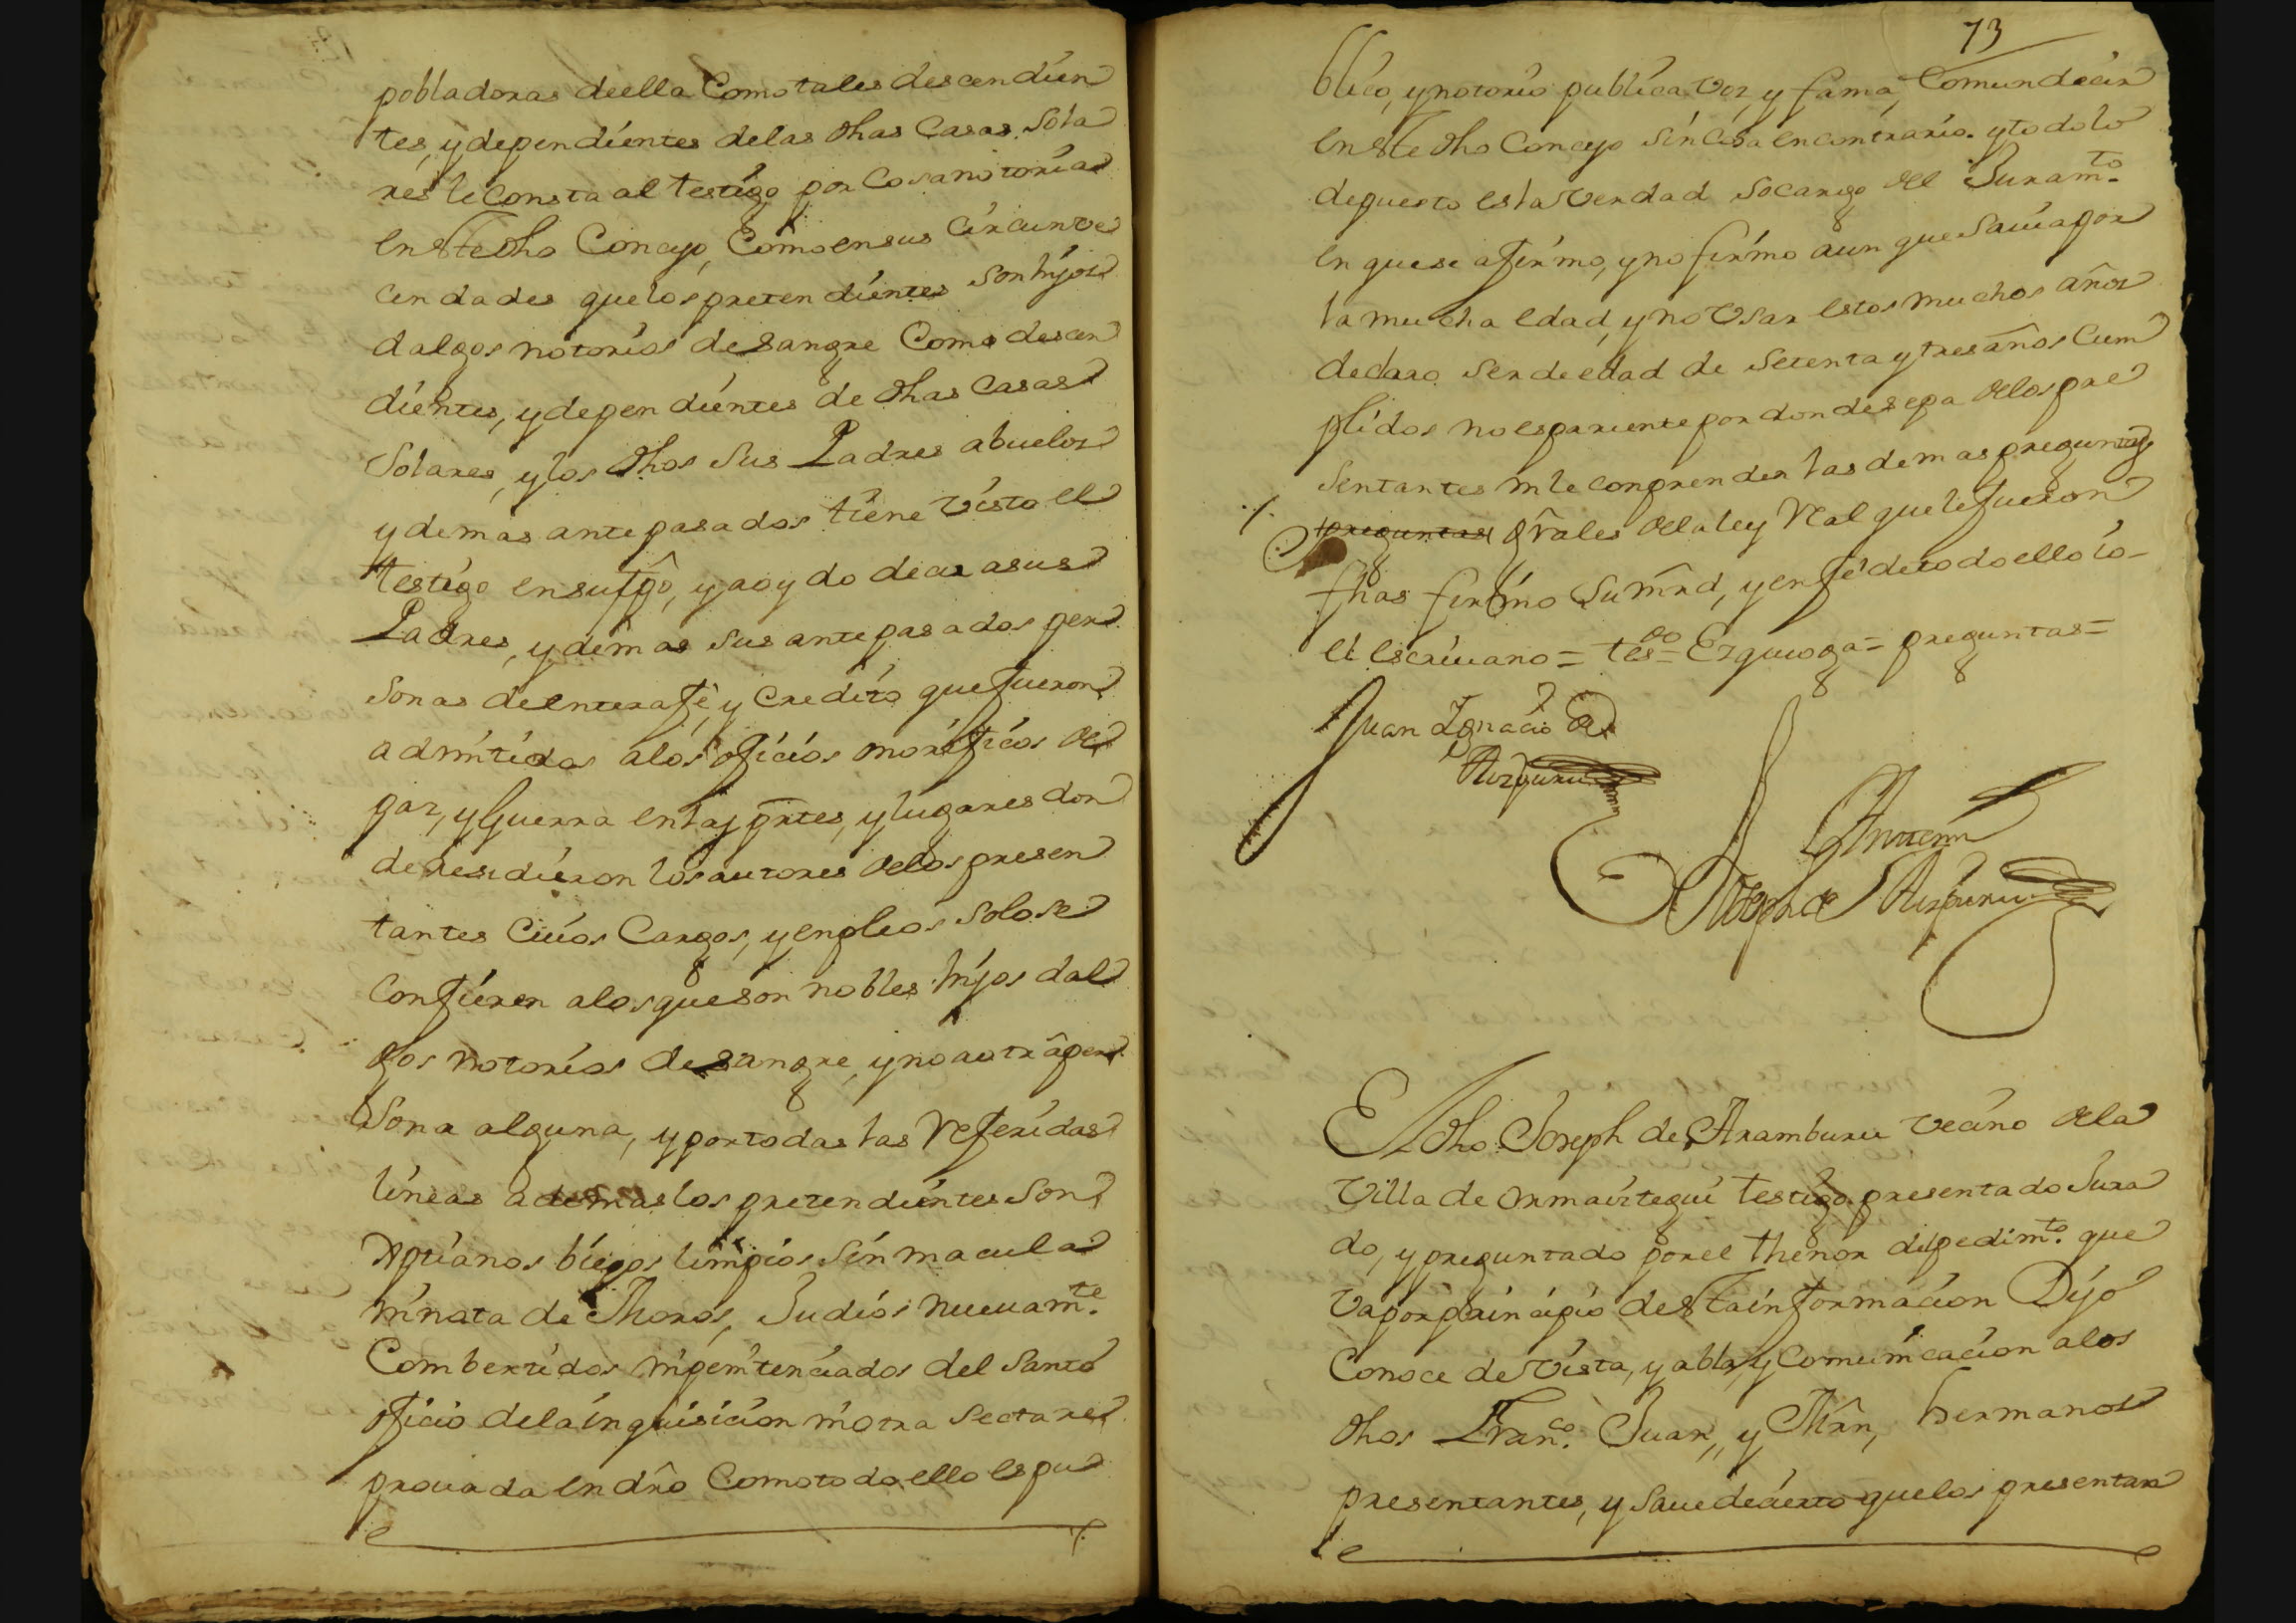 pobladoras deella Como tales descendien
tes, y dependientes delas dhas Casas Sola
res le Consta al testigo por Cosa notoria
en este dho Concejo, Como en sus Circunve
cendades que los pretendientes son hijos
dalgos notorios de sangre Como descen
dientes, y dependientes de dhas Casas
Solares, y los dhos sus Padres abuelos
y demas antepasados tiene visto el
testigo en su tpô, y a oydo decir a sus
Padres, y demas sus antepasados per
sonas de entera fe, y Credito que fueron
admitidos alos oficios onorificos de
paz, y Guerra en las prtes, y lugares don
de Residieron los autores delos presen
tantes Cuios Cargos, y enpleos solo se
Confieren alos que son nobles hijos dal
gos notorios de sangre, y no a otra per
sona alguna, y por todas las Referidas
lineas ademas los pretendientes Son
Xptianos biejos limpios sin macula
ni nota de Moros, Judios nuevamte.
Combertidos ni penitenciados del santo
oficio dela inquisicion ni otra secta re
provada en dro Como todo ello es pu
73
blico, y notorio publica voz, y fama, Comun decir
en este dho Concejo sin Cosa en contrario. y todo lo
depuesto es la verdad so cargo del Juramto.
en que se afirmo, y no firmo aun que savia por
la mucha edad, y no Usar estos muchos años
declaro ser de edad de setenta y tres años Cum
plidos no es pariente por donde sepa delos pre
sentantes ni le conprenden las demas preguntas
preguntas grales dela ley Real que le fueron
fhas firmo su mrd, y en fe de todo ello io
el escrivano = tdo= Ezquioga = preguntas =
Juan Ignacio de
Aizpuru
Ante mi
Joseph de Aizpuru
El dho Joseph de Aramburu vecino dela
Villa de Ormaiztegui testigo presentado Jura
do, y preguntado por el thenor del pedimto. que
va por principio desta informacion Dijo
Conoce de vista, y abla, y Comunicacion alos
dhos Franco. Juan, y Mrn, hermanos
presentantes, y save de cierto que los presentan